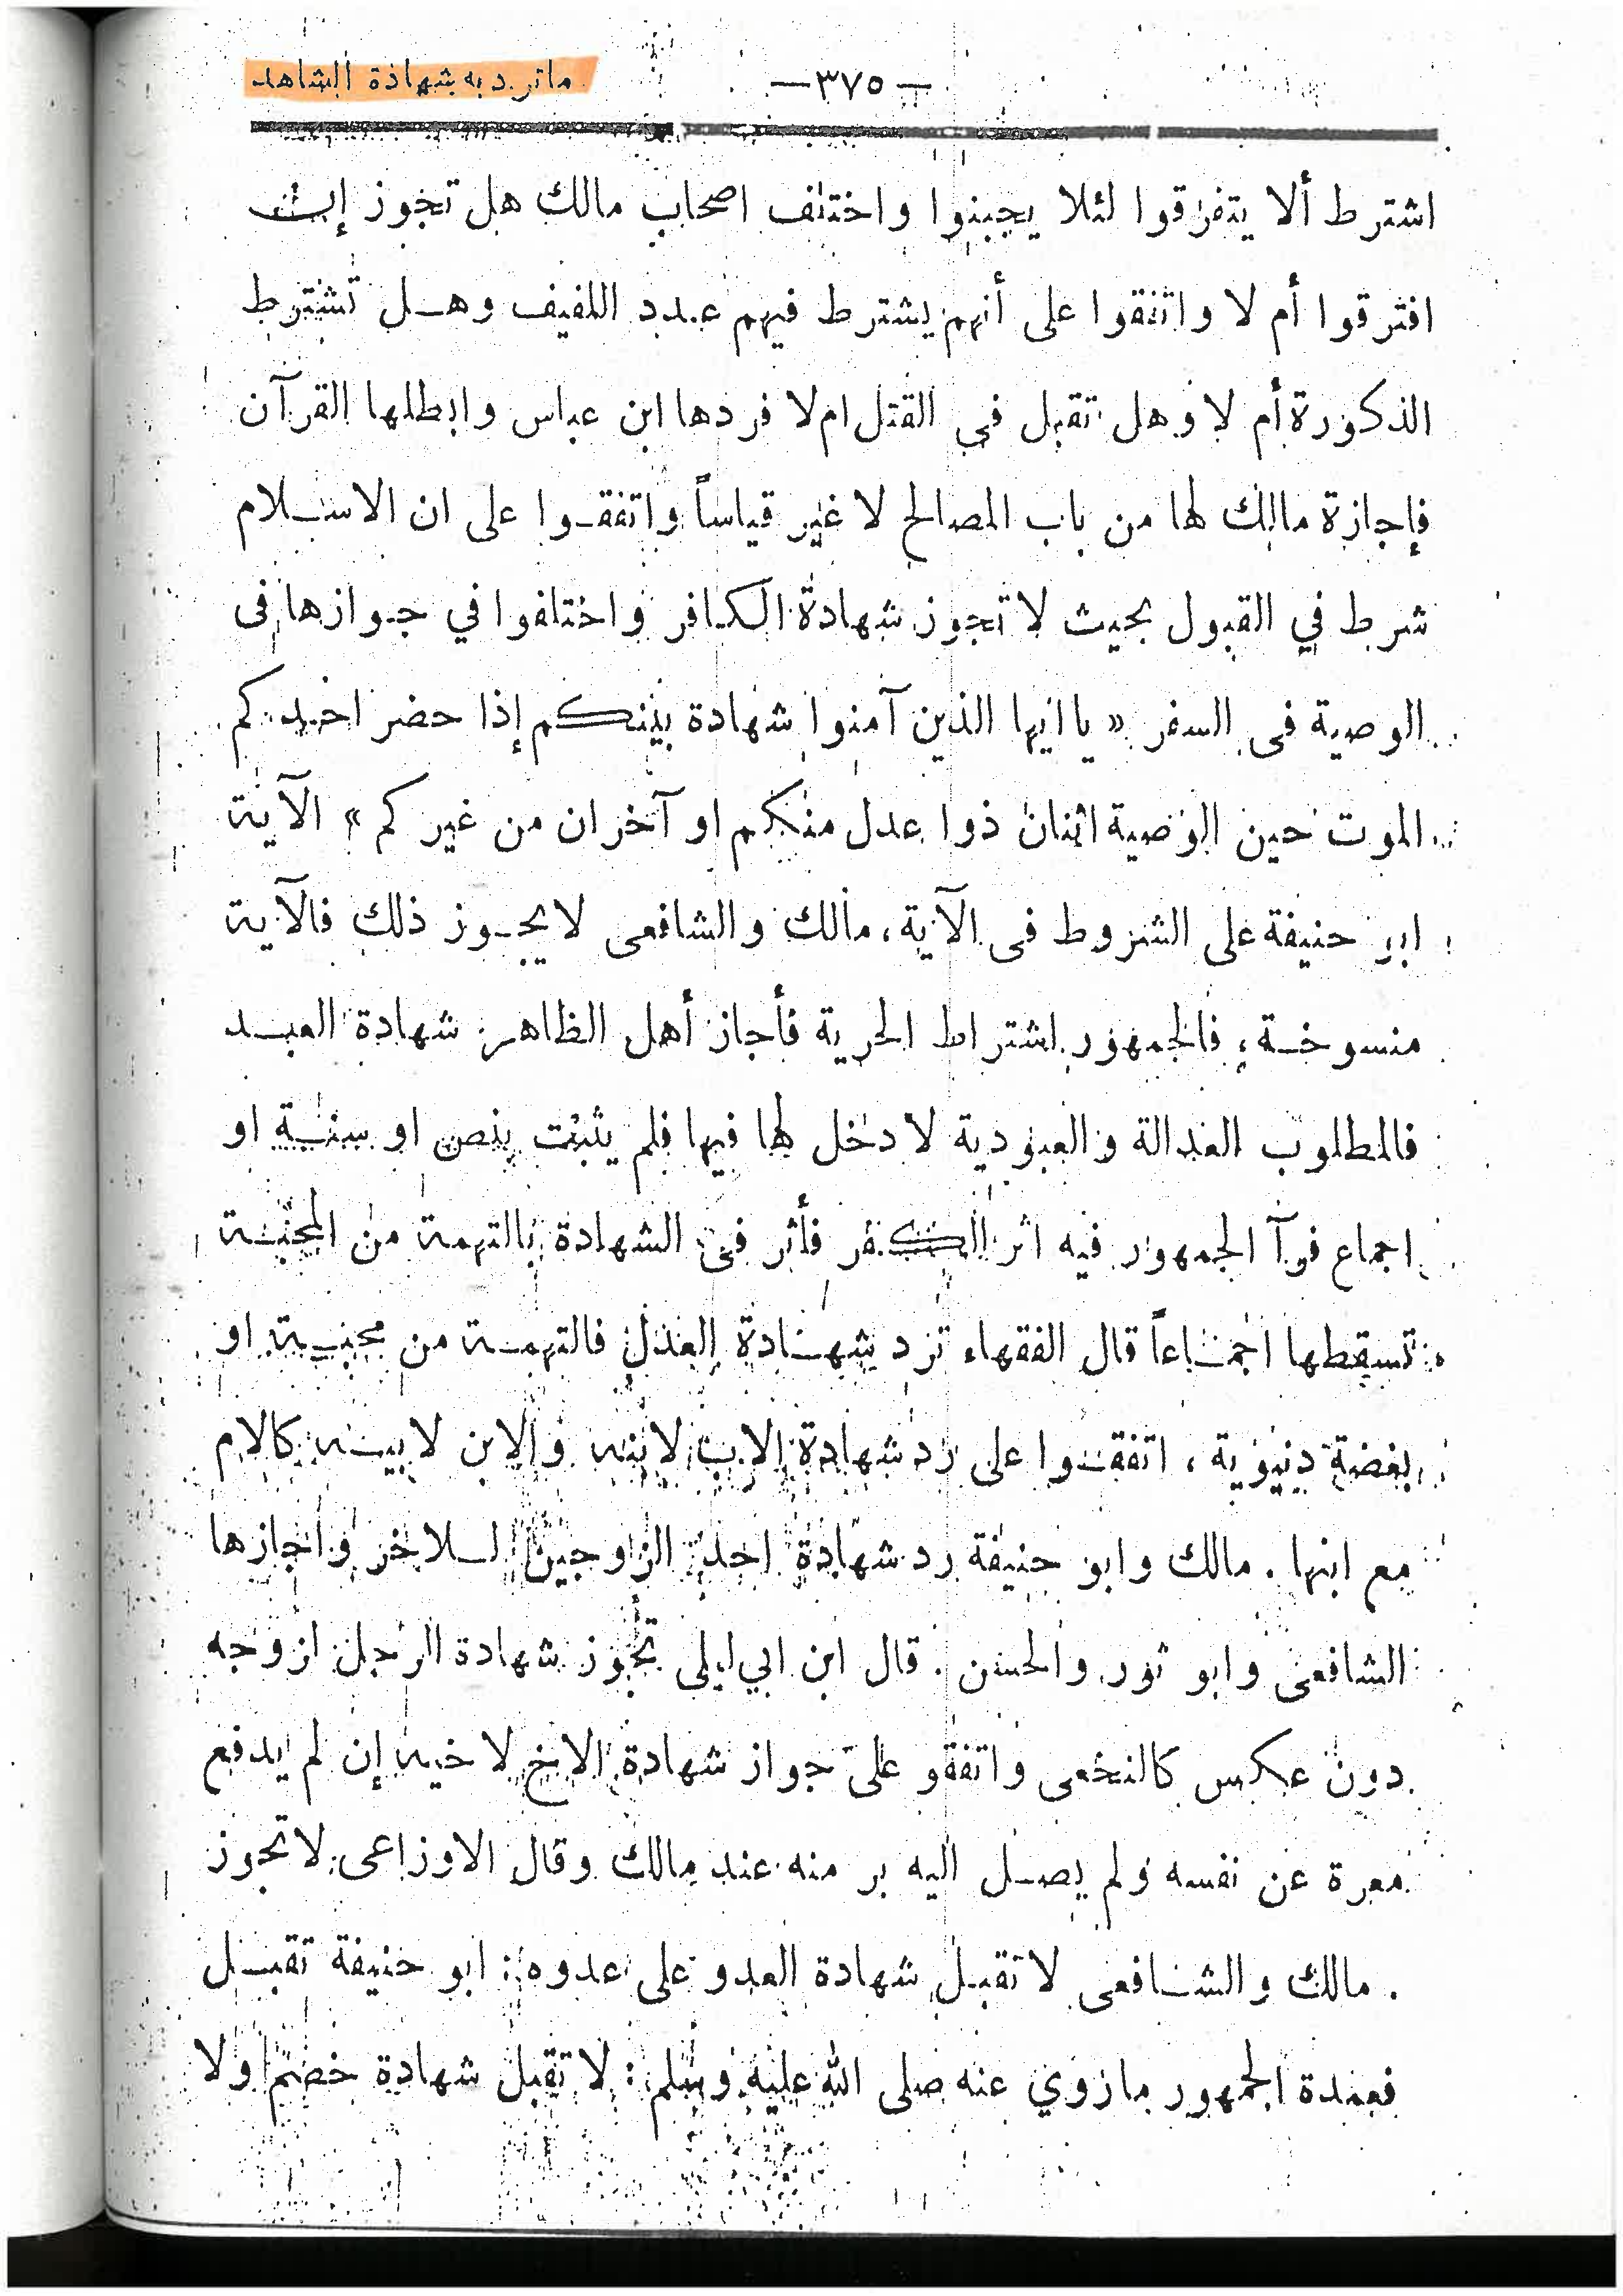 ماترد به شهادة الشاهد
— ٣٧٥ —
اشترط ألا يتفرقوا لئلا يجبنوا واختلف اصحاب مالك هل تجوز إن
افترقوا أم لا واتفقوا على أنهم يشترط فيهم عدد اللفيف وهل تشترط
الذكورة أم لا وهل تقبل في القتل ام لا فردها ابن عباس وابطلها القرآن
فإجازة مالك لها من باب المصالح لا غير قياساً واتفقوا على ان الاسلام
شرط في القبول بحيث لا تجوز شهادة الكافر واختلفوا في جوازها فى
الوصية فى السفر « يا ايها الذين آمنوا شهادة بينكم إذا حضر احدكم
الموت حين الوصية اثنان ذوا عدل منكم او آخران من غير كم » الآية
ابو حنيفة على الشروط فى الآية، مالك والشافعى لا يجوز ذلك فالآية
منسوخة، فالجمهور اشتراط الحرية فأجاز أهل الظاهر شهادة العبد
فالمطلوب العدالة والعبودية لا دخل لها فيها فلم يثبت بنص او سنة او
اجماع فرآ الجمهور فيه اثر الكفر فأثر فى الشهادة بالتهمة من المحبة
تسقطها اجماعاً قال الفقهاء ترد شهادة العدل فالتهمة من محبة او
بغضة دنيوية، اتفقوا على رد شهادة الاب لابنه والابن لابيه كالام
مع ابنها . مالك وابو حنيفة رد شهادة احد الزوجين للاخر واجازها
الشافعى وابو ثور والحسن . قال ابن ابي ليلى تجوز شهادة الرجل لزوجه
دون عكس كالنخعى واتفقو على جواز شهادة الاخ لاخيه إن لم يدفع
معرة عن نفسه ولم يصل اليه بر منه عند مالك وقال الاوزاعى لا تجوز
. مالك والشافعى لا تقبل شهادة العدو على عدوه: ابو حنيفة تقبل
فعمدة الجمهور ما روي عنه صلى الله عليه وسلم: لا تقبل شهادة خصم ولا